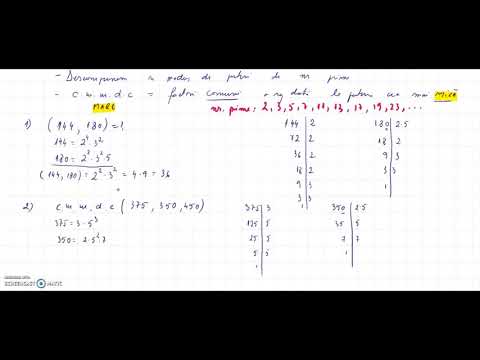 - Descompunem în produs de puteri de nr prime
- c.m.m.d.c = factori comuni o sg. dată la puterea cea mai mică
MARE
nr. prime: 2, 3, 5, 7, 11, 13, 17, 19, 23, ...
1) (144, 180) = ?
144 = 2⁴·3²
180 = 2²·3²·5
(144, 180) = 2²·3² = 4·9 = 36
144 | 2
72 | 2
36 | 2
18 | 2
9 | 3
3 | 3
1
180 | 2·5
18 | 2
9 | 3
3 | 3
1
2) c.m.m.d.c (375, 350, 450)
375 = 3·5³
350 = 2·5²·7
375 | 3
125 | 5
25 | 5
5 | 5
1
350 | 2·5
35 | 5
7 | 7
1
SCREENCAST MATIC